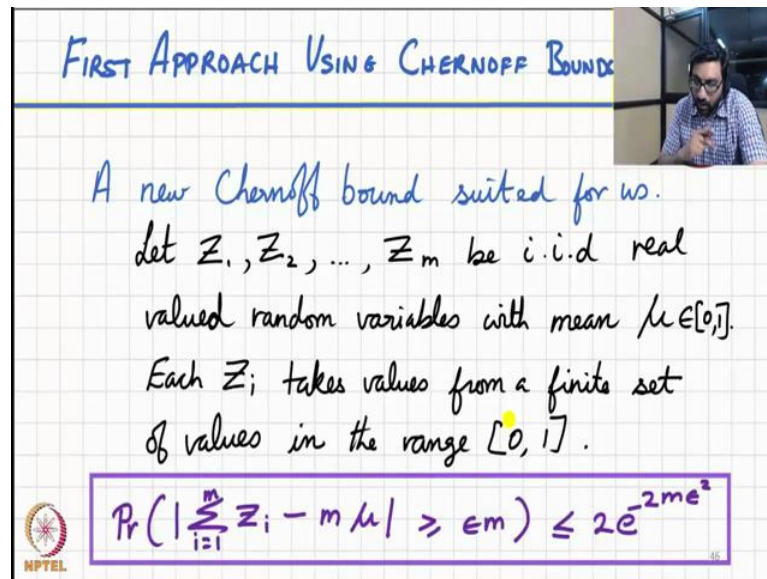 FIRST APPROACH USING CHERNOFF BOUNDS
A new Chernoff bound suited for us.
Let Z₁, Z₂, ..., Zₘ be i.i.d real
valued random variables with mean μ ∈ [0,1].
Each Zᵢ takes values from a finite set
of values in the range [0, 1].
Pr(|∑ᵢ₌₁ᵐ Zᵢ - mμ| ≥ ϵm) ≤ 2e^{-2mϵ²}
NPTEL
46